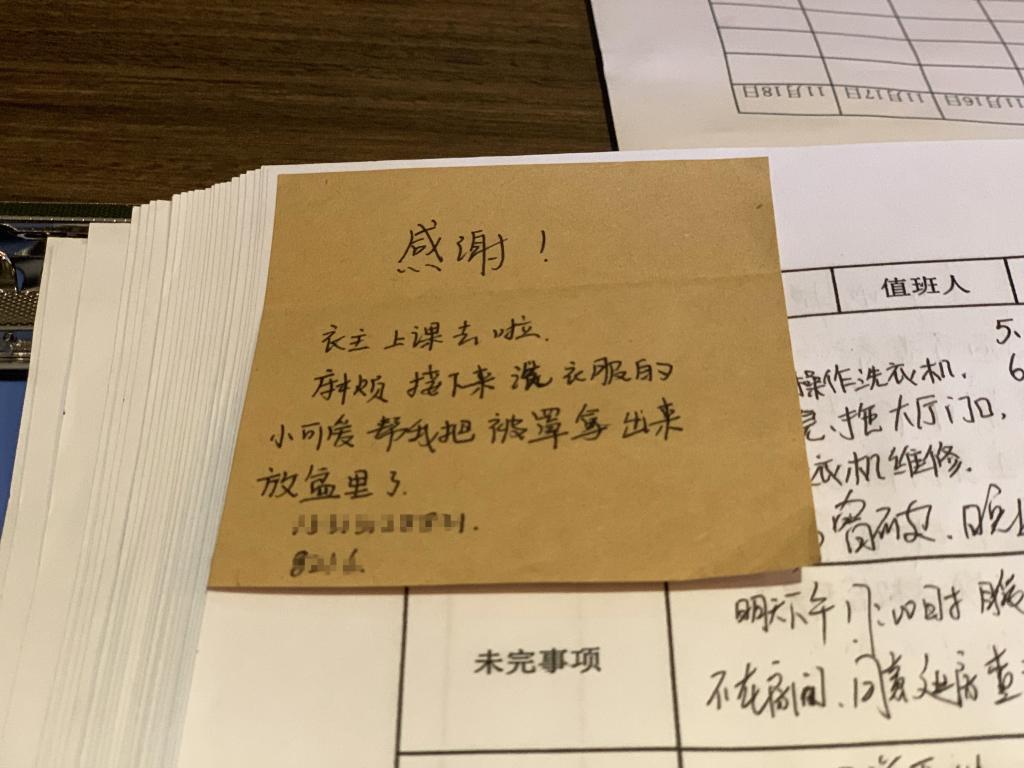 11月18日 11月17日 11月16日
感谢！
衣主上课去啦.
麻烦 接下来 洗衣服的
小可爱 帮我把 被罩拿出来
放盆里了.
值班人
5、
操作洗衣机. 6
拖大厅门口,
衣机维修.
未完事项
明天下午
不在房间.